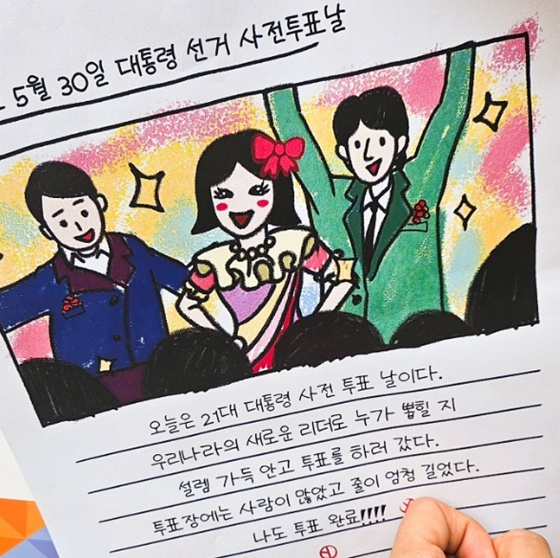 5월 30일 대통령 선거 사전투표날
오늘은 21대 대통령 사전 투표 날이다.
우리나라의 새로운 리더로 누가 뽑힐 지
설렘 가득 안고 투표를 하러 갔다.
투표장에는 사람이 많았고 줄이 엄청 길었다.
나도 투표 완료!!!!